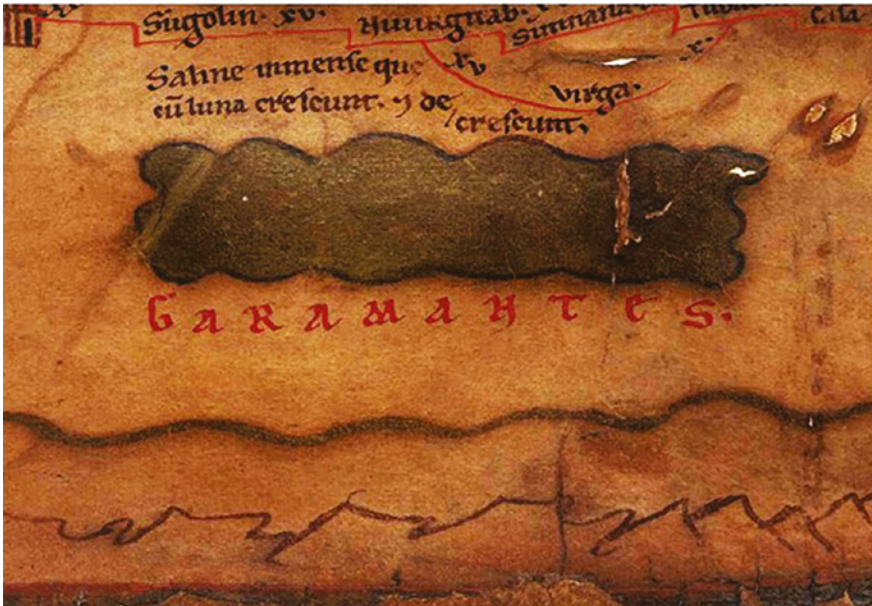 Sugolin. xv.
Saline inmense que
cũ luna crescunt. ⁊ de
crescunt.
xv
x.
virga.
GARAMANTES.